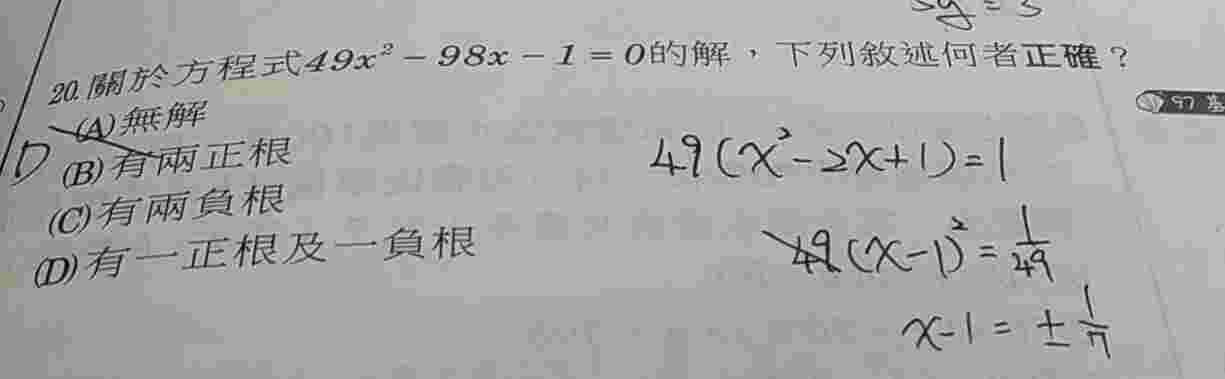 20.關於方程式49x² − 98x − 1 = 0的解，下列敘述何者正確？
(A)無解
D (B)有兩正根
(C)有兩負根
(D)有一正根及一負根
97
49(x²-2x+1)=1
49(x-1)²=1/49
x-1=±1/7